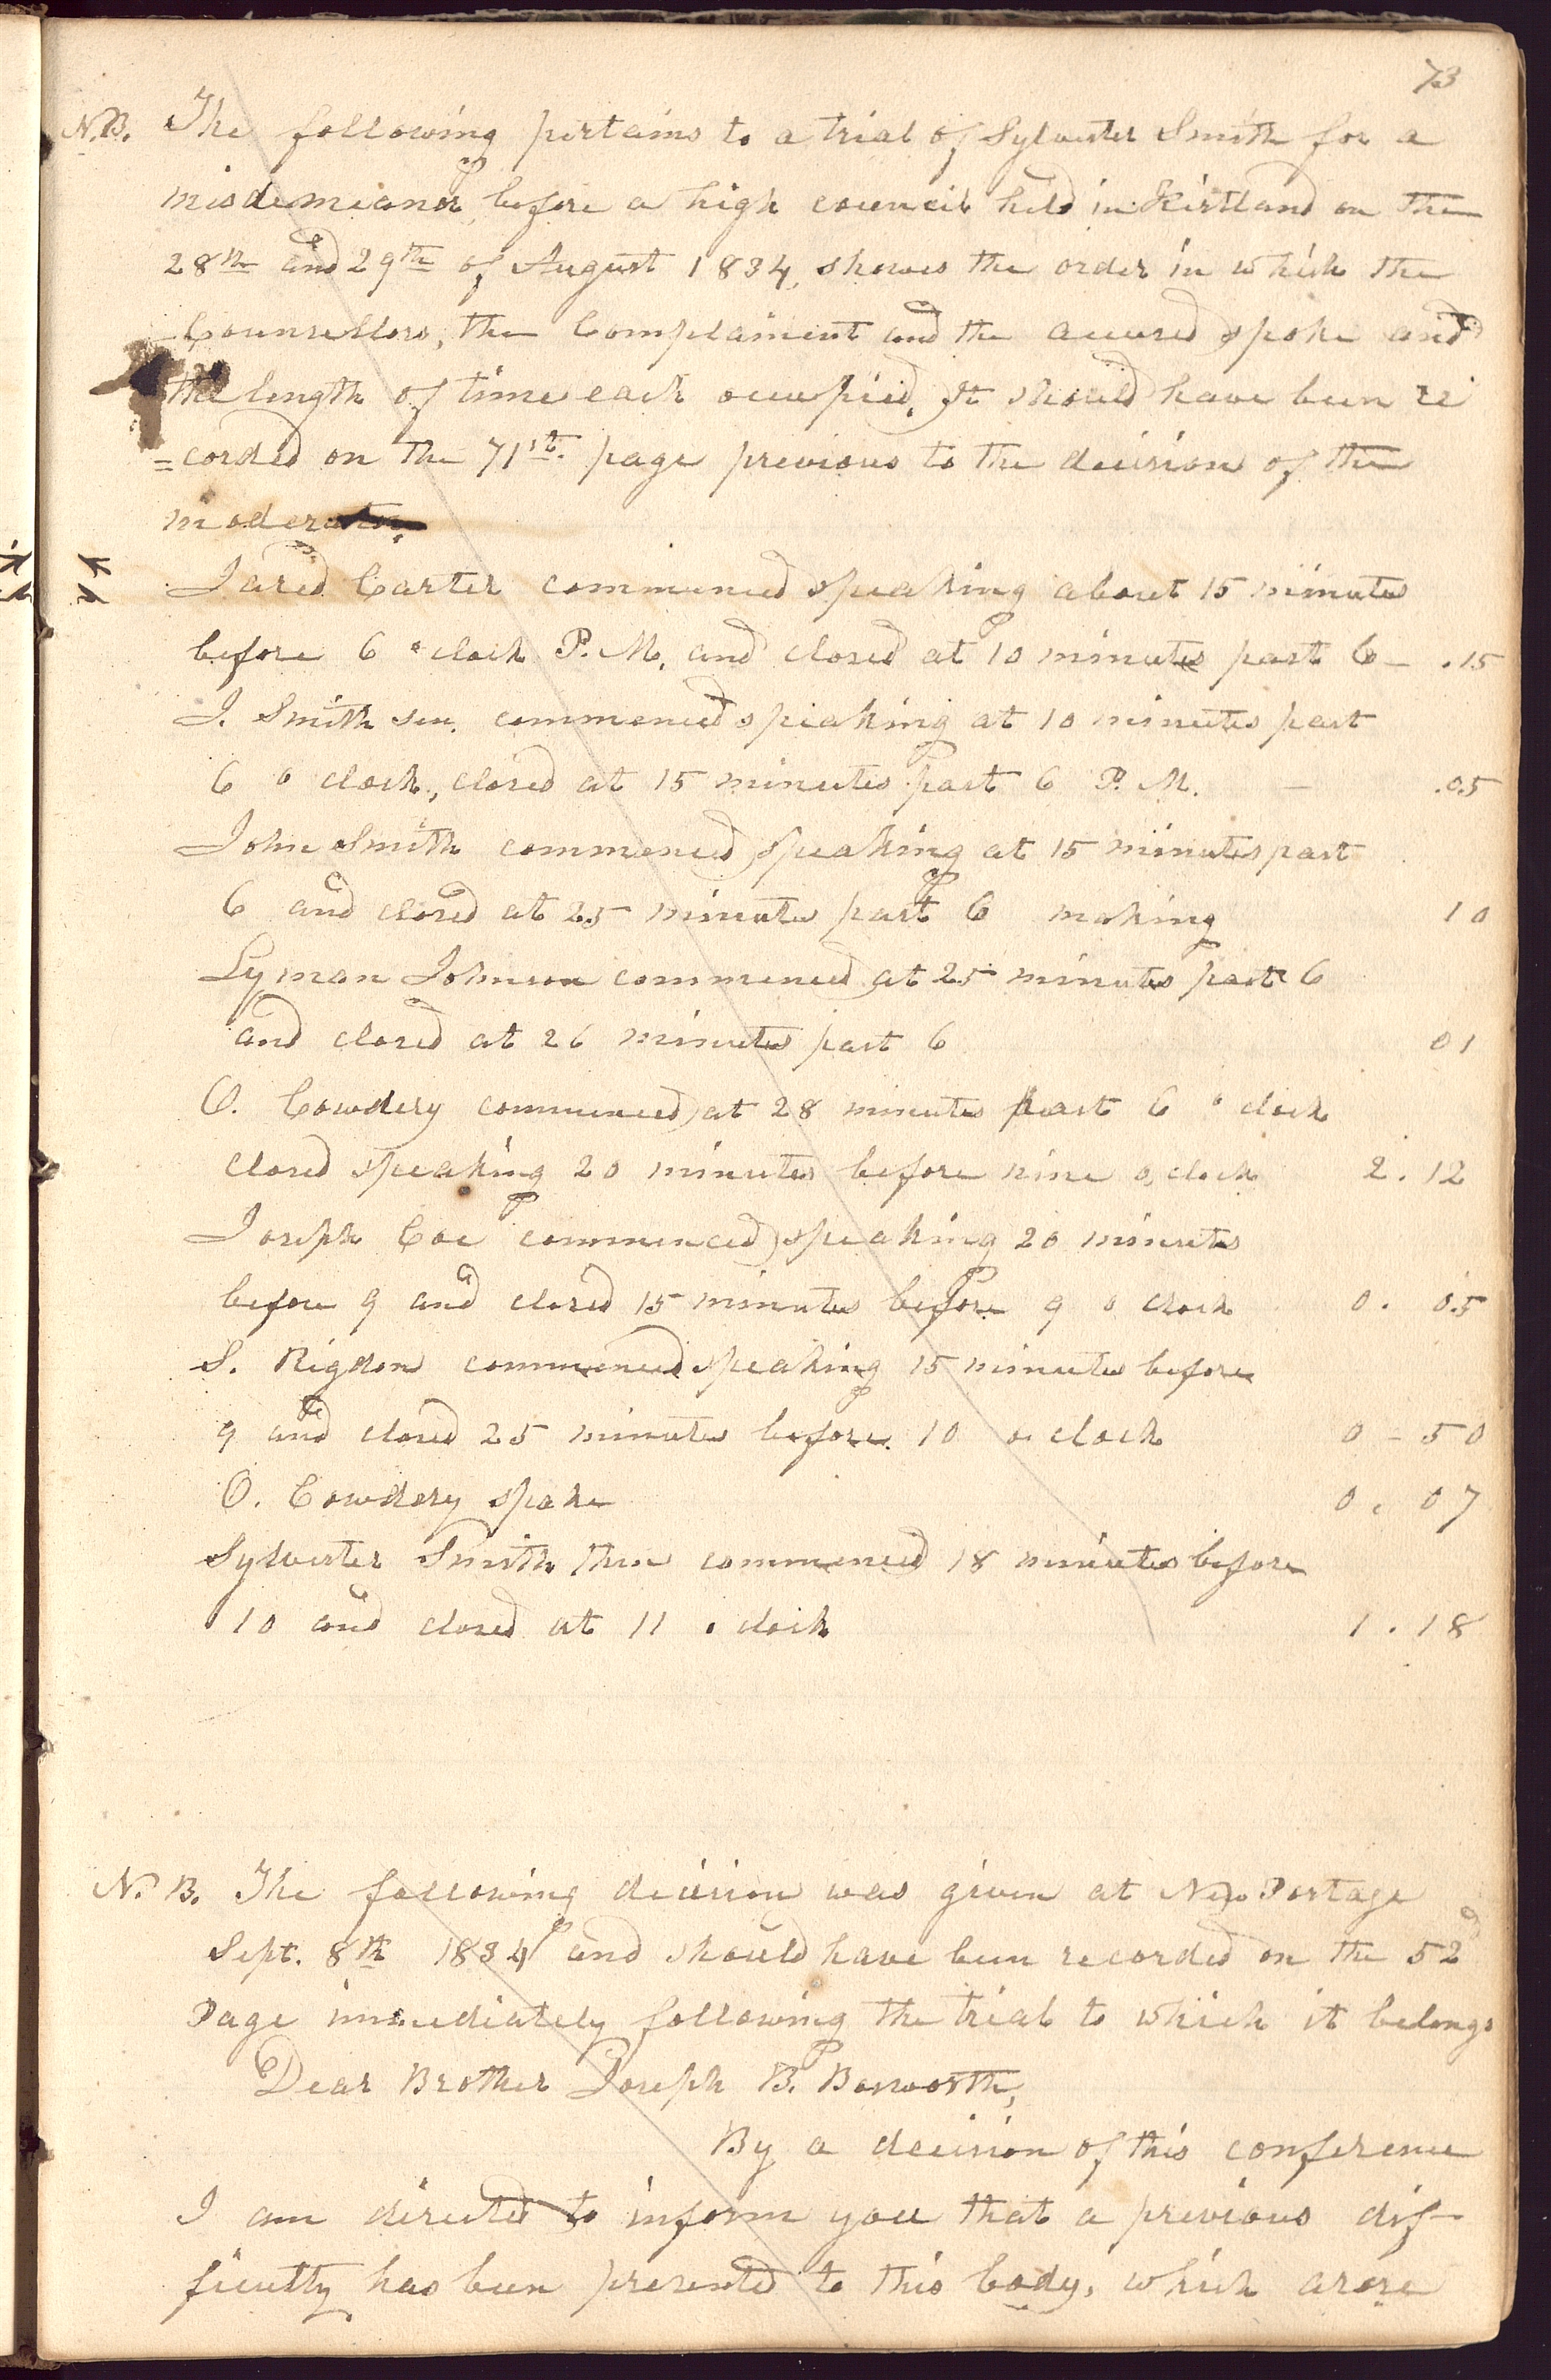 73
N.B. The following pertains to a trial of Sylvester Smith for a
misdemeanor before a high council held in Kirtland on the
28th and 29th of August 1834, shows the order in which the
Counsellors, the Complainent and the accused spoke and
the length of time each occupied. It should have been re
=corded on the 71st. page previous to the decision of the
moderator.
Jared Carter commenced speaking about 15 minutes
before 6 o clock P.M. and closed at 10 minutes past 6 - .15
J. Smith sen. commenced speaking at 10 minutes past
6 o clock, closed at 15 minutes past 6 P. M. - .05
John Smith commenced speaking at 15 minutes past
6 and closed at 25 minutes past 6 making 10
Lyman Johnson commenced at 25 minutes past 6
and closed at 26 minutes past 6 01
O. Cowdery commenced at 28 minutes past 6 o clock
closed speaking 20 minutes before nine o, clock 2.12
Joseph Coe commenced speaking 20 minutes
before 9 and closed 15 minutes before 9 o clock 0. 05
S. Rigdon commenced speaking 15 minutes before
9 and closed 25 minutes before 10 o clock 0 - 50
O. Cowdery spoke 0. 07
Sylvester Smith then commenced 18 minutes before
10 and closed at 11 o clock 1.18
N. B. The following decision was given at New Portage
Sept. 8th 1834 and should have been recorded on the 52d
Page immediately following the trial to which it belongs
Dear Brother Joseph B. Bosworth,
By a decision of this conference
I am directed to inform you that a previous dif-
ficulty has been presented to this body, which arose